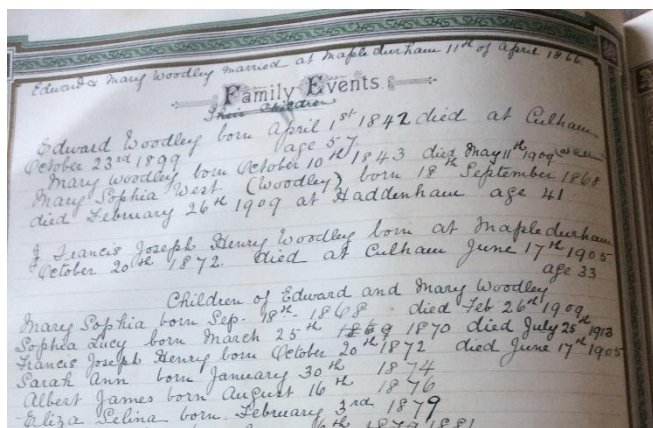 Edward & Mary Woodley married at Mapledurham 11th of April 1866
Family Events.
Their Children
Edward Woodley born April 1st 1842 died at Culham
October 23rd 1899 age 57
Mary Woodley born October 10th 1843 died May 11th 1909
Mary Sophia West (Woodley) born 18th September 1868
died February 26th 1909 at Haddenham age 41
Francis Joseph Henry Woodley born at Mapledurham
October 20th 1872. died at Culham June 17th 1905
age 33
Children of Edward and Mary Woodley
Mary Sophia born Sep. 18th 1868 died Feb 26th 1909
Sophia Lucy born March 25th 1869 1870 died July 25th 1913
Francis Joseph Henry born October 20th 1872 died June 17th 1905
Sarah Ann born January 30th 1874
Albert James born August 16th 1876
Eliza Selina born February 3rd 1879
6th 1879 1881